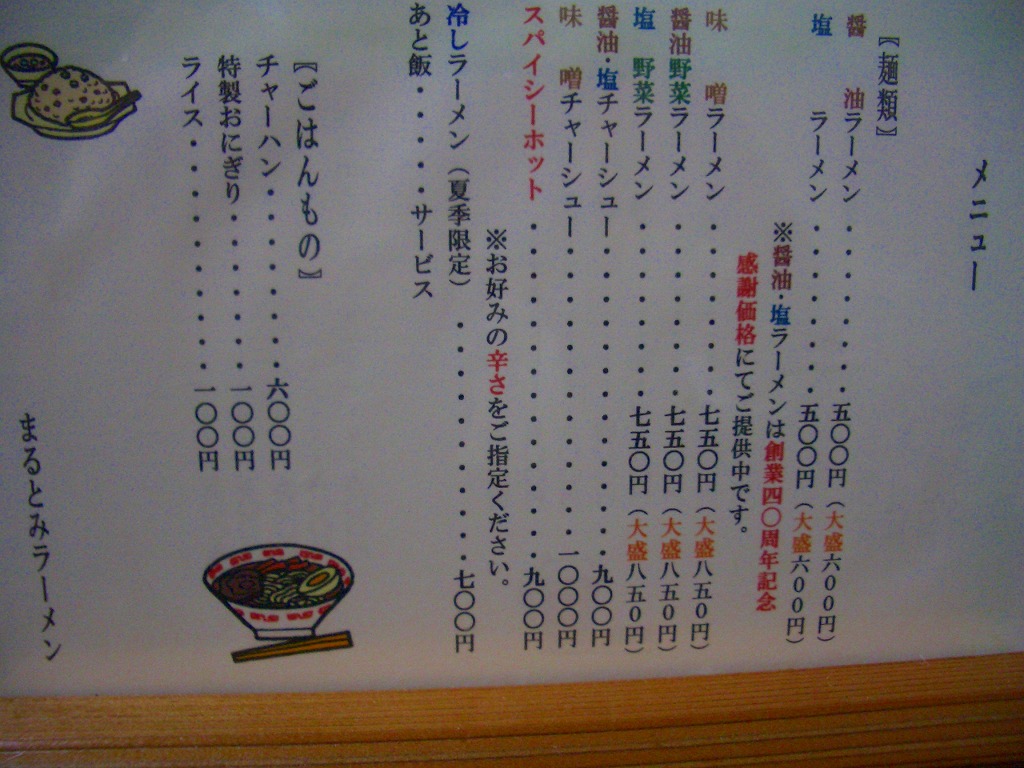 メニュー
『麺類』
醤油ラーメン・・・・・・・五〇〇円（大盛六〇〇円）
塩ラーメン・・・・・・・五〇〇円（大盛六〇〇円）
※醤油・塩ラーメンは創業四〇周年記念
感謝価格にてご提供中です。
味噌ラーメン・・・・・・・七五〇円（大盛八五〇円）
醤油野菜ラーメン・・・・・・・七五〇円（大盛八五〇円）
塩野菜ラーメン・・・・・・・七五〇円（大盛八五〇円）
醤油・塩チャーシュー・・・・・・・・・・九〇〇円
味噌チャーシュー・・・・・・・・・一〇〇〇円
スパイシーホット・・・・・・・・・・九〇〇円
※お好みの辛さをご指定ください。
冷しラーメン（夏季限定）・・・・・・・・・七〇〇円
あと飯・・・・・サービス
『ごはんもの』
チャーハン・・・・・・・・六〇〇円
特製おにぎり・・・・・・・一〇〇円
ライス・・・・・・・・・・一〇〇円
まるとみラーメン